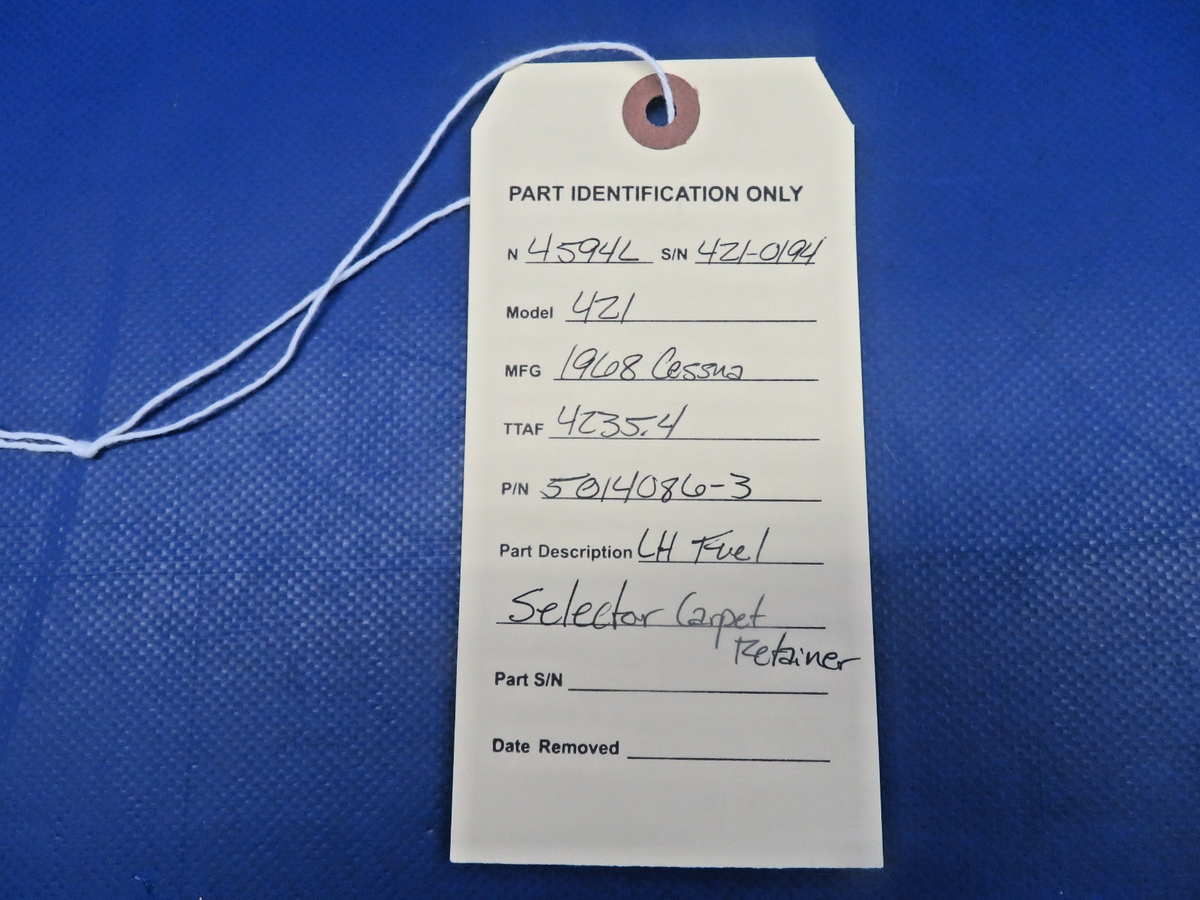 PART IDENTIFICATION ONLY
N 4594L S/N 421-0194
Model 421
MFG 1968 Cessna
TTAF 4235.4
P/N 5014086-3
Part Description LH Fuel
Selector Carpet
Retainer
Part S/N
Date Removed